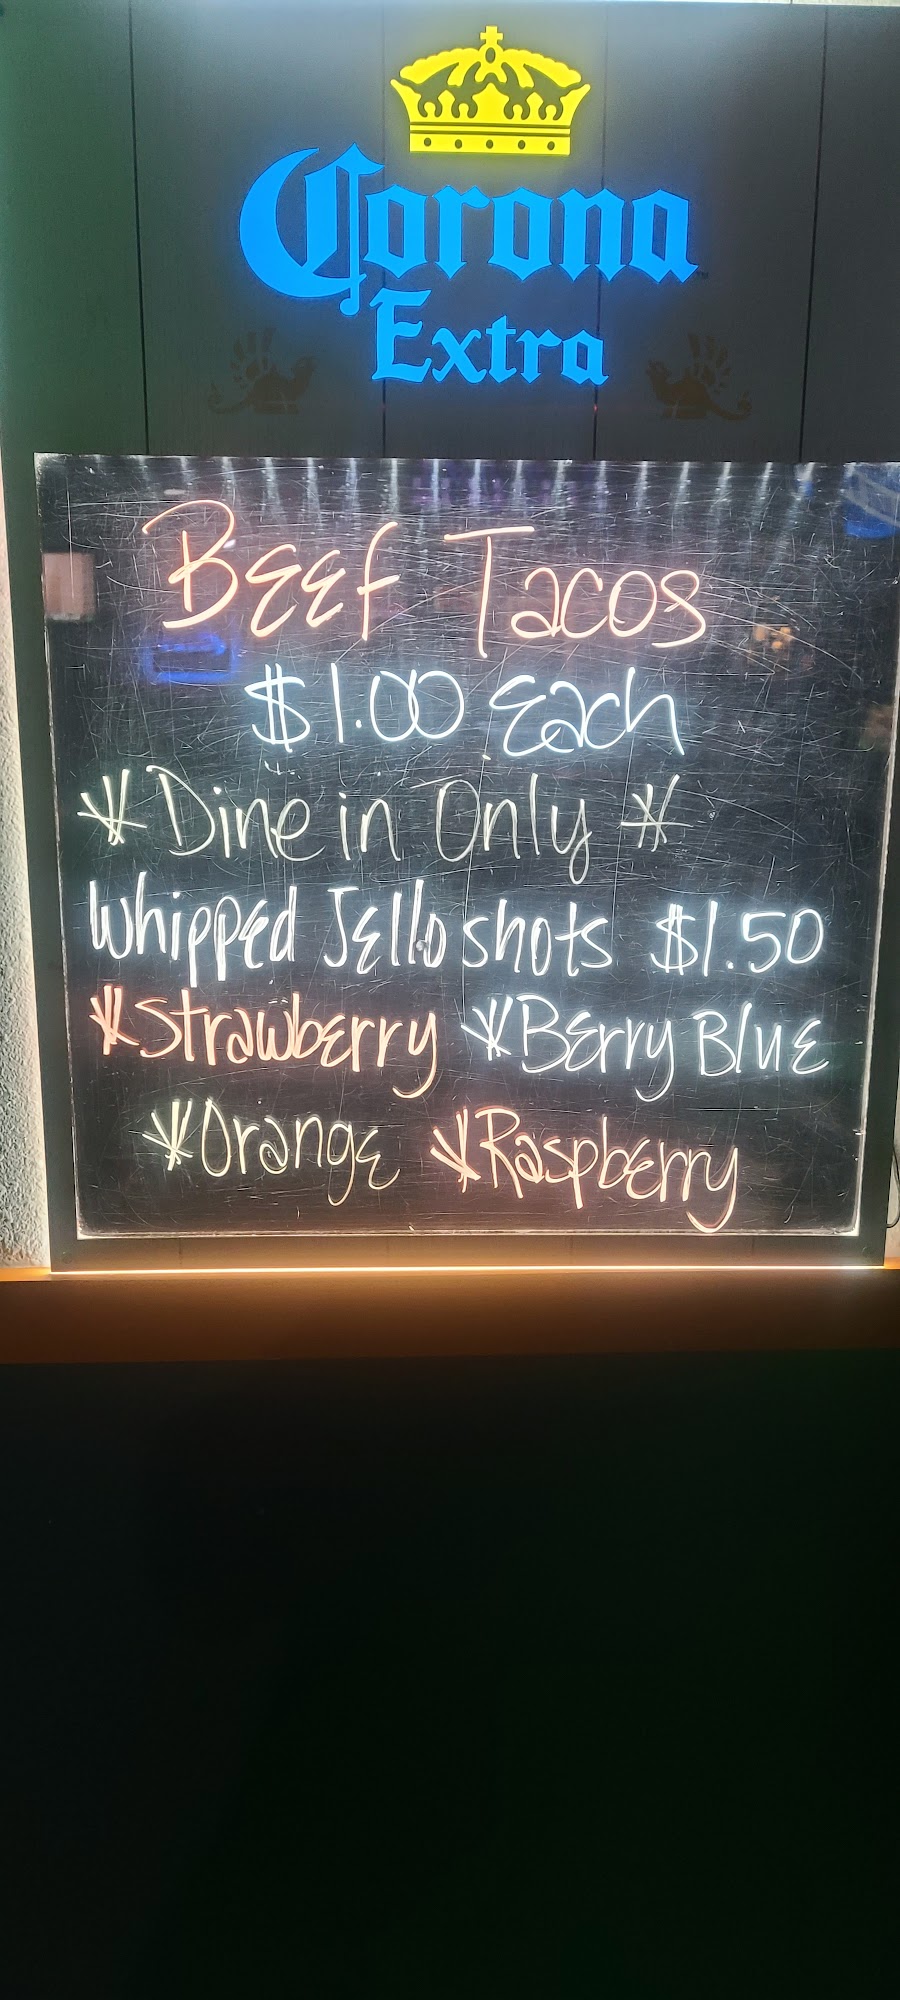 Corona
Extra
Beef Tacos
$1.00 Each
*Dine in Only*
Whipped Jello shots $1.50
*Strawberry *Berry Blue
*Orange *Raspberry